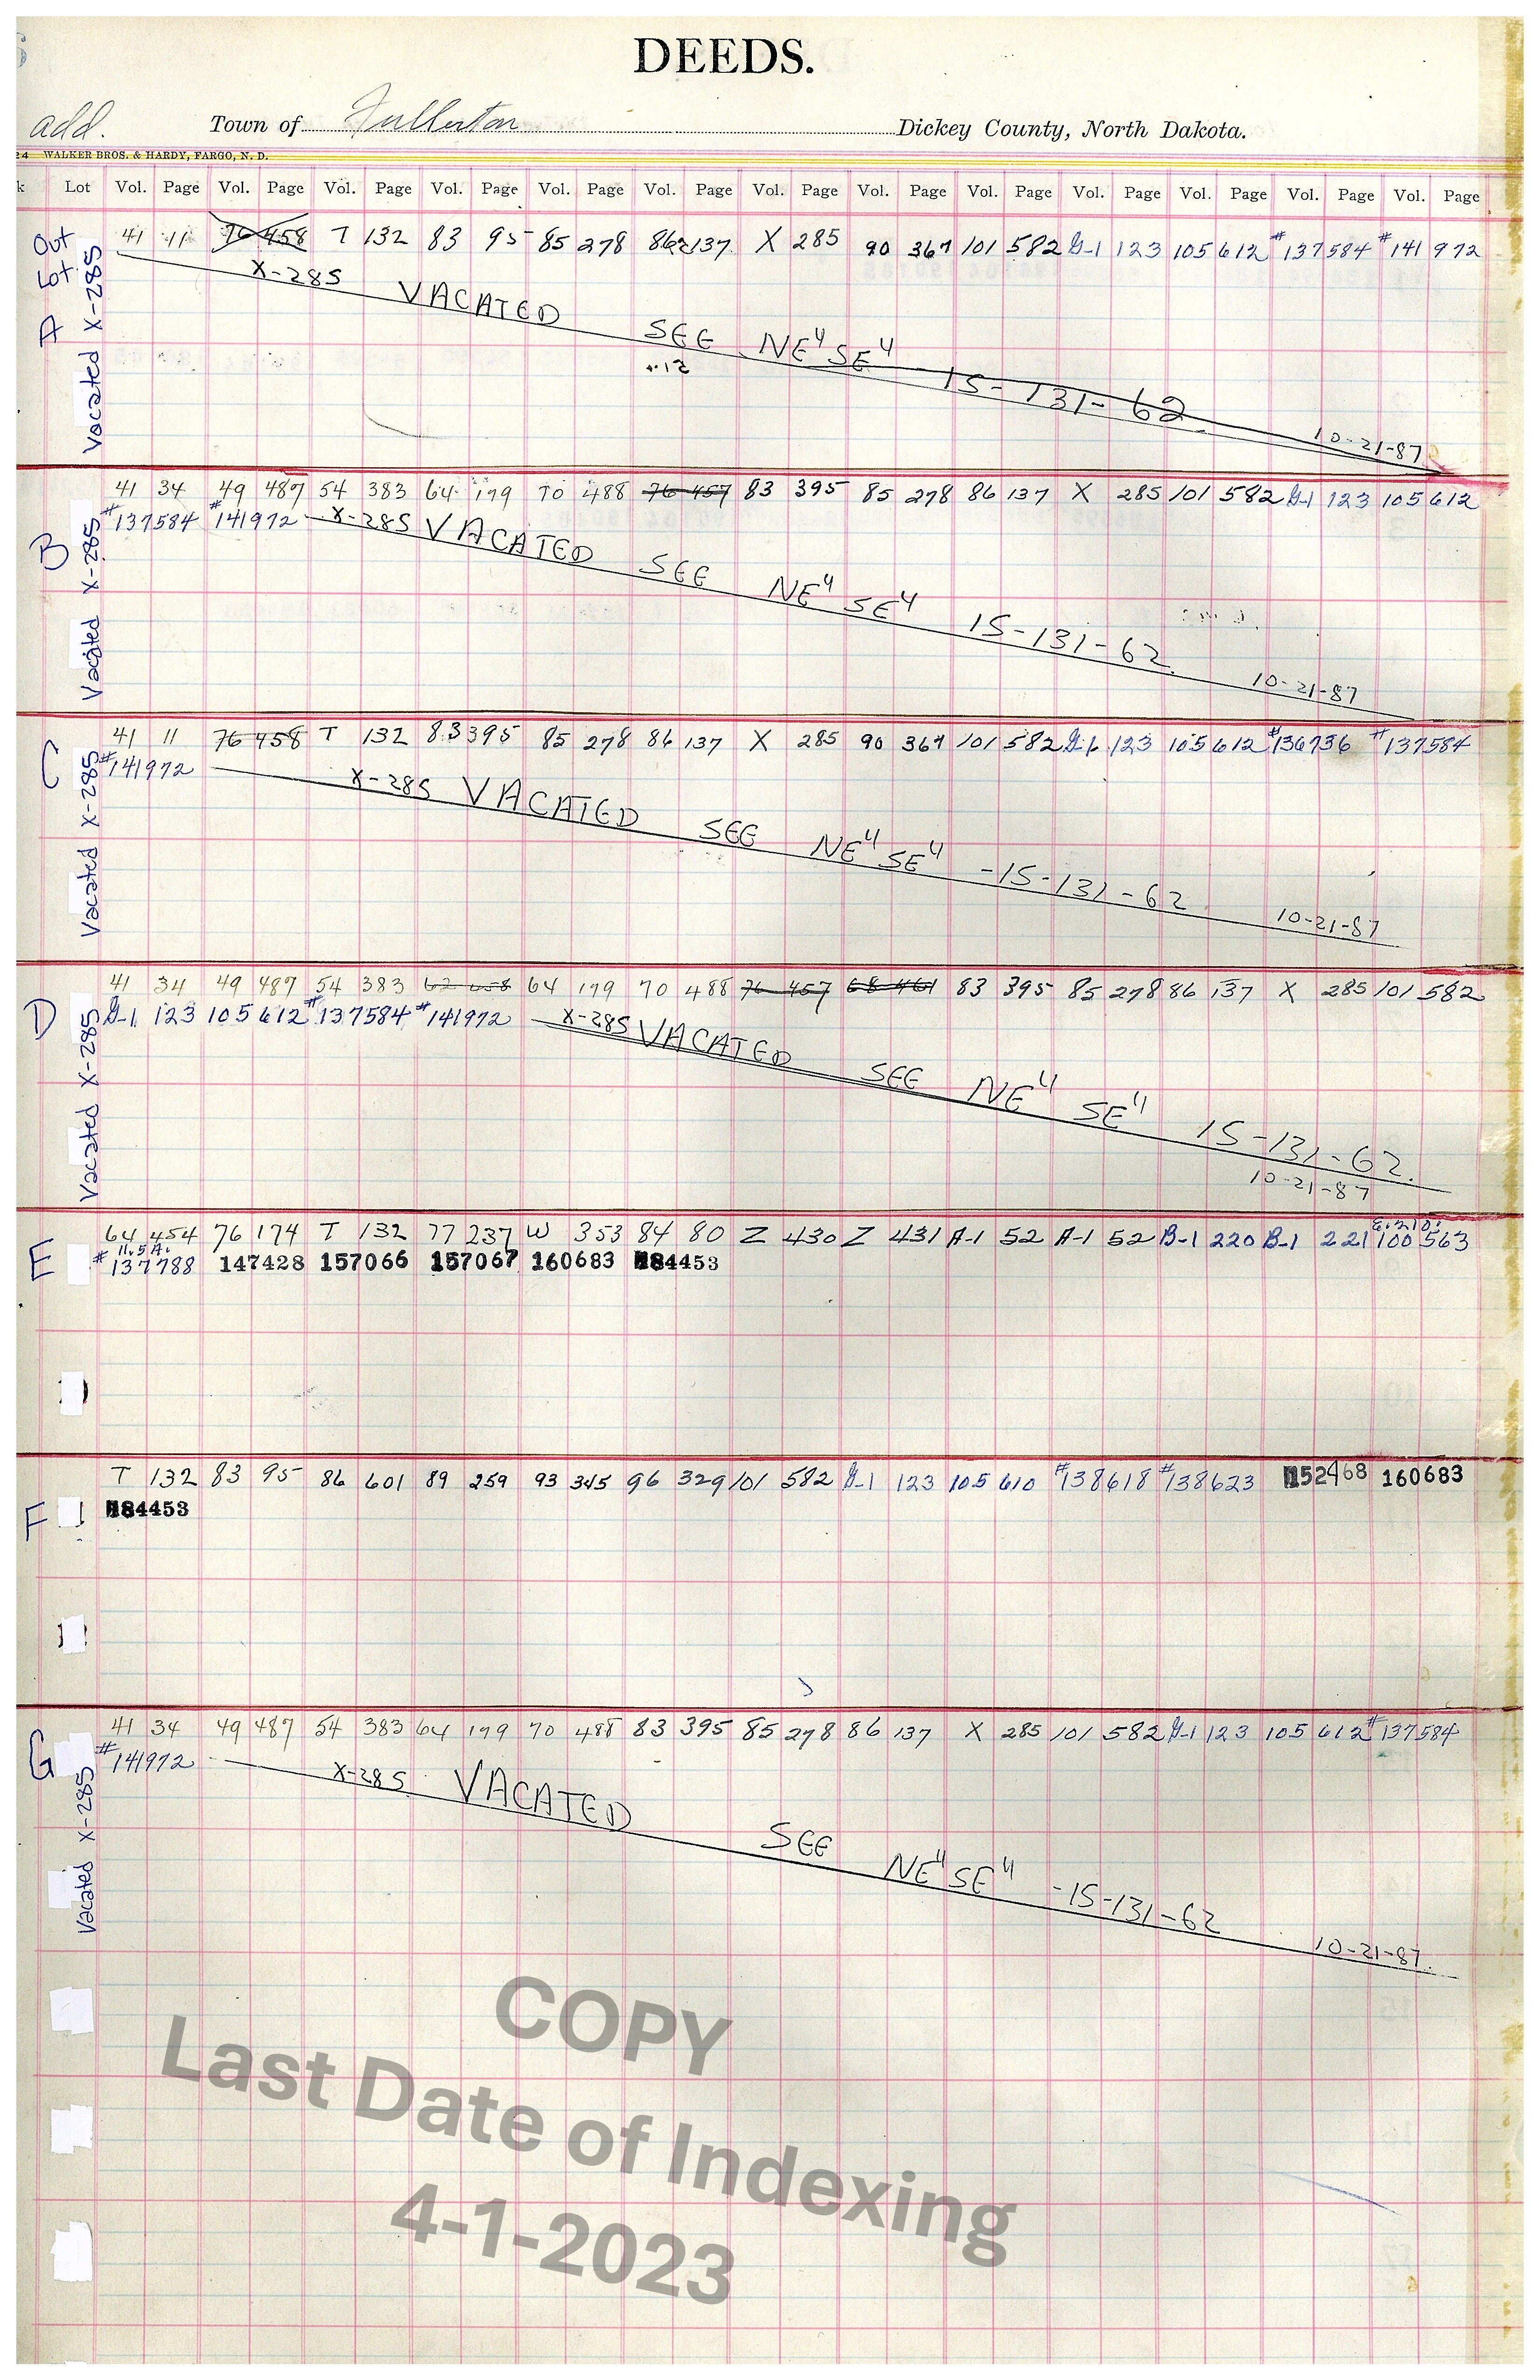 DEEDS.
add. Town of Fullerton Dickey County, North Dakota.
24 WALKER BROS. & HARDY, FARGO, N. D.
k Lot Vol. Page Vol. Page Vol. Page Vol. Page Vol. Page Vol. Page Vol. Page Vol. Page Vol. Page Vol. Page Vol. Page Vol. Page Vol. Page
Out Lot A
Vacated X-285
41 11 76 458 T 132 83 95 85 278 86 137 X 285 90 367 101 582 G-1 123 105 612 #137584 #141972
X-285 VACATED SEE NE4 SE4 15-131-62
10-21-87
B
Vacated X-285
41 34 49 487 54 383 64 179 70 488 76 457 83 395 85 278 86 137 X 285 101 582 G-1 123 105 612
#137584 #141972 X-285 VACATED SEE NE4 SE4 15-131-62
10-21-87
C
Vacated X-285
41 11 76 458 T 132 83 395 85 278 86 137 X 285 90 367 101 582 G-1 123 105 612 #136736 #137584
#141972 X-285 VACATED SEE NE4 SE4 -15-131-62
10-21-87
D
Vacated X-285
41 34 49 487 54 383 62 658 64 179 70 488 76 457 68 461 83 395 85 278 86 137 X 285 101 582
G-1 123 105 612 #137584 #141972 X-285 VACATED SEE NE4 SE4 15-131-62.
10-21-87
E
64 454 76 174 T 132 77 237 W 353 84 80 Z 430 Z 431 A-1 52 A-1 52 B-1 220 B-1 221 E. 210' 100 563
11.5 A.
#137788 147428 157066 157067 160683 184453
F
T 132 83 95 86 601 89 259 93 345 96 329 101 582 G-1 123 105 610 #138618 #138623 152468 160683
184453
G
Vacated X-285
41 34 49 487 54 383 64 179 70 488 83 395 85 278 86 137 X 285 101 582 G-1 123 105 612 #137584
#141972 X-285 VACATED SEE NE4 SE4 -15-131-62
10-21-87.
COPY
Last Date of Indexing
4-1-2023